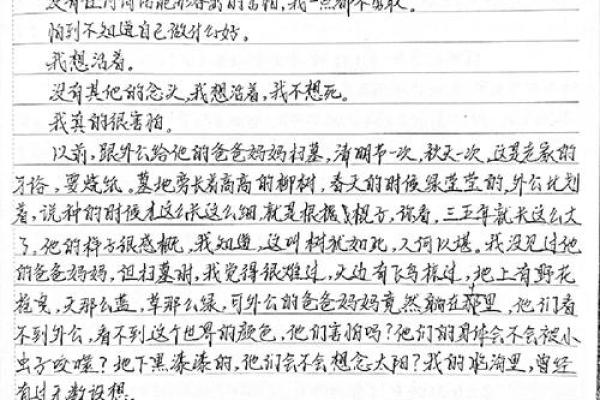 没有任何词语能形容我的害怕,我一点都不勇敢。
怕到不知道自己做什么好。
我想活着。
没有其他的念头,我想活着,我不想死。
我真的很害怕。
以前,跟外公给他的爸爸妈妈扫墓,清明节一次,秋天一次,这是老家的
习俗,要烧纸。墓地旁长着高高的柳树,春天的时候绿莹莹的,外公比划
着,说种的时候才这么长这么细,就是根棍棍子,你看,三五年就长这么大
了,他的样子很感慨,我知道,这叫树犹如此,人何以堪。我没见过他
的爸爸妈妈,但扫墓时,我觉得很难过,天边有飞鸟掠过,地上有野花
摇曳,天那么蓝,草那么绿,可外公的爸爸妈妈竟然躺在那里,他们看
不到外公,看不到这个世界的颜色,他们害怕吗?他们的身体会不会被小
虫子咬噬?地下黑漆漆的,他们会不会想念太阳?我的脑海里,曾经
有过无数设想。